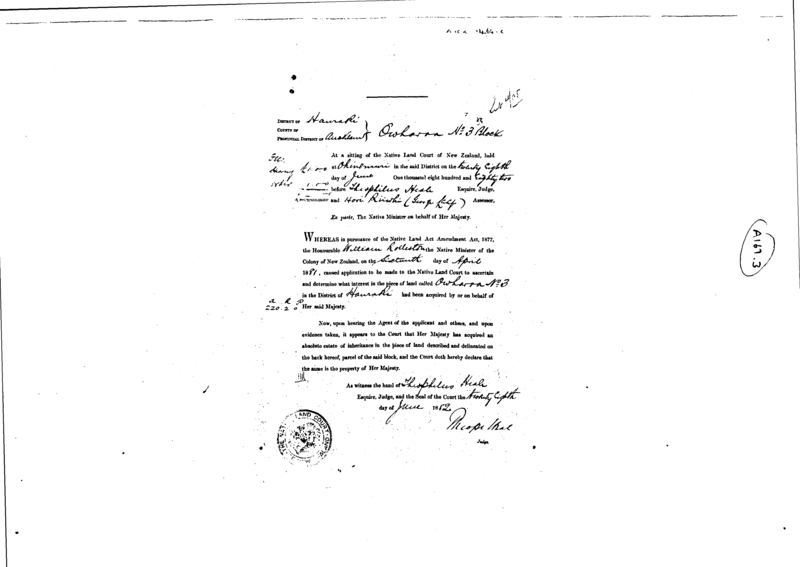 DISTRICT OF Hauraki
COUNTY OF
PROVINCIAL DISTRICT OF Auckland
Owharoa No. 3 Block
At a sitting of the Native Land Court of New Zealand, held
at Ohinemuri in the said District on the Twenty Eighth
day of June One thousand eight hundred and Eighty two
before Theophilus Heale Esquire, Judge,
and Hori Assessor.
Ex parte, The Native Minister on behalf of Her Majesty.
WHEREAS in pursuance of the Native Land Act Amendment Act, 1877,
the Honourable William Rolleston the Native Minister of the
Colony of New Zealand, on the Sixteenth day of April
1881, caused application to be made to the Native Land Court to ascertain
and determine what interest in the piece of land called Owharoa No 3
in the District of Hauraki had been acquired by or on behalf of
Her said Majesty.
a. r. p.
220. 2. 0
Now, upon hearing the Agent of the applicant and others, and upon
evidence taken, it appears to the Court that Her Majesty has acquired an
absolute estate of inheritance in the piece of land described and delineated on
the back hereof, parcel of the said block, and the Court doth hereby declare that
the same is the property of Her Majesty.
As witness the hand of Theophilus Heale
Esquire, Judge, and the Seal of the Court the twenty Eighth
day of June 1882
Theops Heale
Judge.
THE NATIVE LAND COURT
A167.3